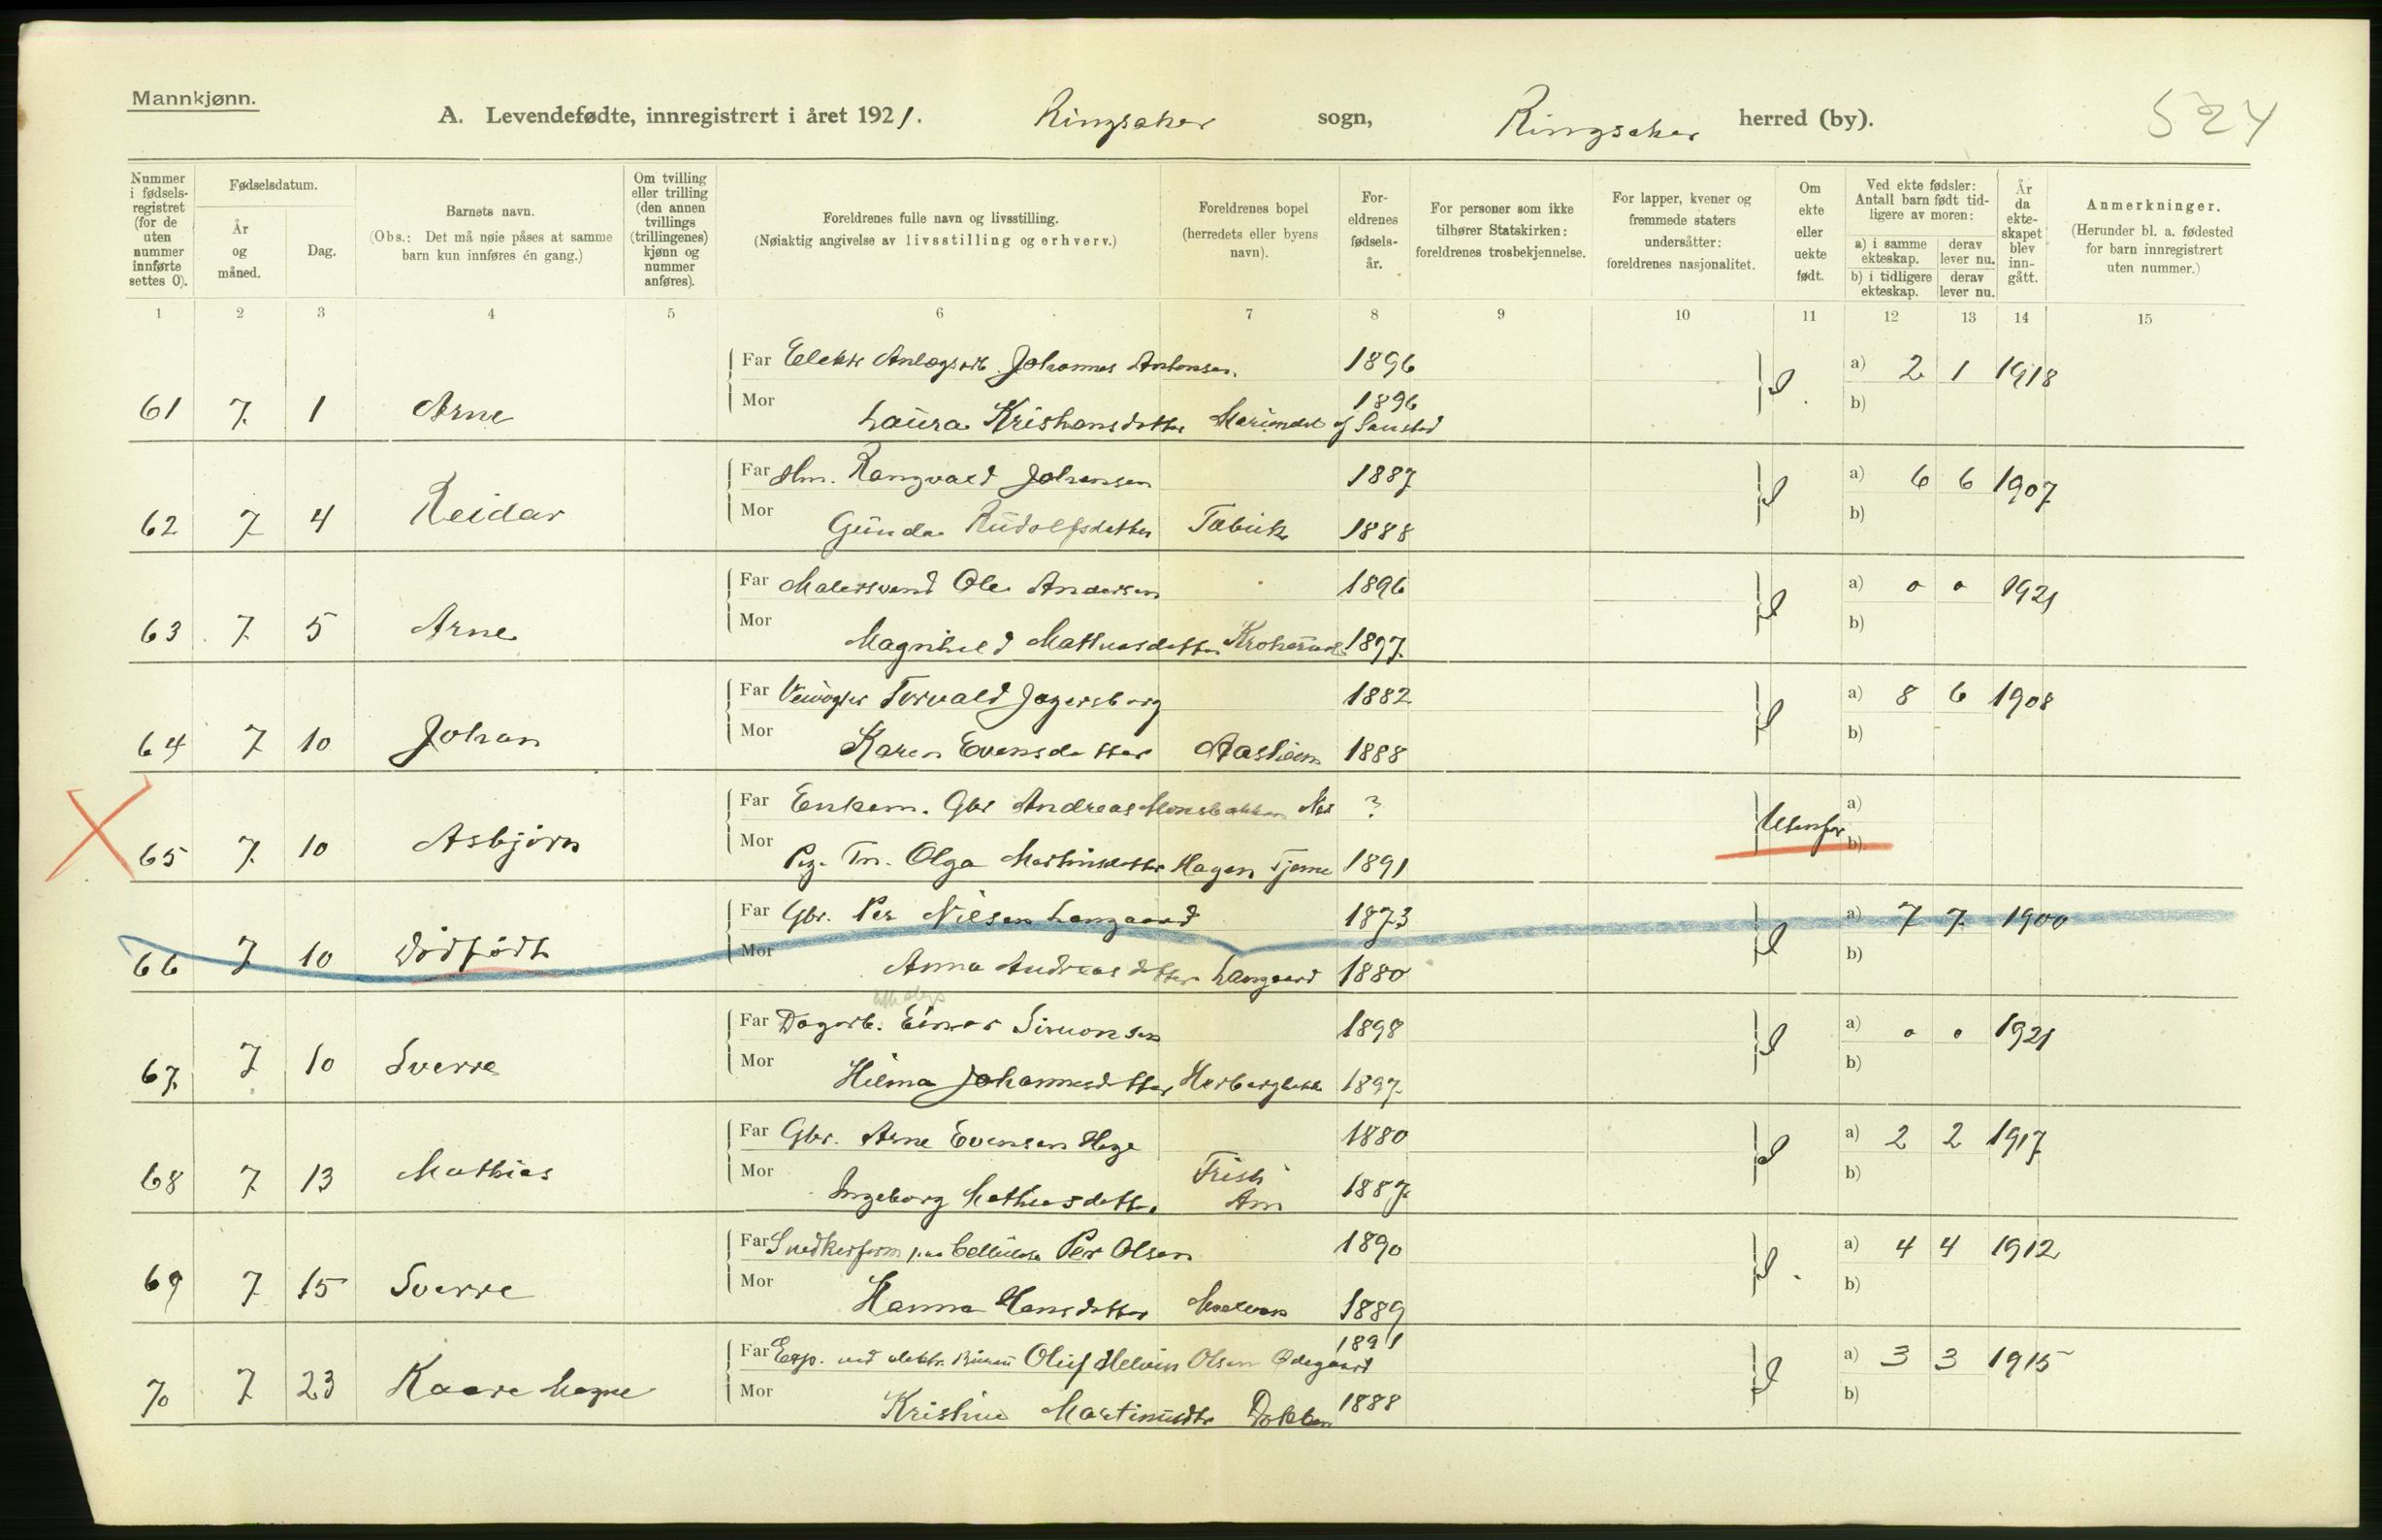 Mannkjønn.
A. Levendefødte, innregistrert i året 1921. Ringsaker sogn, Ringsaker herred (by). 524
Nummer i fødselsregistret (for de uten nummer innførte settes 0).
Fødselsdatum.
År og måned.
Dag.
Barnets navn.
(Obs.: Det må nøie påses at samme barn kun innføres én gang.)
Om tvilling eller trilling (den annen tvillings (trillingenes) kjønn og nummer anføres).
Foreldrenes fulle navn og livsstilling.
(Nøiaktig angivelse av livsstilling og erhverv.)
Foreldrenes bopel (herredets eller byens navn).
Foreldrenes fødselsår.
For personer som ikke tilhører Statskirken: foreldrenes trosbekjennelse.
For lapper, kvener og fremmede staters undersåtter: foreldrenes nasjonalitet.
Om ekte eller uekte født.
Ved ekte fødsler: Antall barn født tidligere av moren:
a) i samme ekteskap. derav lever nu.
b) i tidligere ekteskap. derav lever nu.
År da ekteskapet blev inngått.
Anmerkninger.
(Herunder bl. a. fødested for barn innregistrert uten nummer.)
1 2 3 4 5 6 7 8 9 10 11 12 13 14 15
Far Elektr Johannes Antonsen 1896 a) 2 1 1918
61 7 1 Arne Mor Laura Kristiansdatter 1896 b)
Far Ragnvald Johansen 1887 a) 6 6 1907
62 7 4 Reidar Mor Gunda Rudolfsdatter 1888 b)
Far Malersvend Ole Andersen 1896 a) 0 0 1921
63 7 5 Arne Mor Magnhild Mathiasdatter 1897 b)
Far Torvald Jagersborg 1882 a) 8 6 1908
64 7 10 Johan Mor Karen Evensdatter 1888 b)
Far Enkem. Gbr Andreas Nes ? a)
65 7 10 Asbjørn Mor Olga Martinsdatter Hagen 1891 Utenfor b)
Far Gbr. Per Nilsen Langaard 1873 a) 7 7 1900
66 7 10 Dødfødt Mor Anna Andreasdatter Langaard 1880 b)
Far Dagarb. Einar Simonsen 1898 a) 0 0 1921
67 7 10 Sverre Mor Hilma Johannesdatter 1897 b)
Far Gbr. Arne Evensen 1880 a) 2 2 1917
68 7 13 Mathias Mor Ingeborg Mathiasdatter 1887 b)
Far Snedkerform Per Olsen 1890 a) 4 4 1912
69 7 15 Sverre Mor Hanna Hansdatter 1889 b)
Far Exp. ved elektr. Oluf Melvin Olsen Ødegaard 1891 a) 3 3 1915
70 7 23 Kaare Magne Mor Kristine 1888 b)